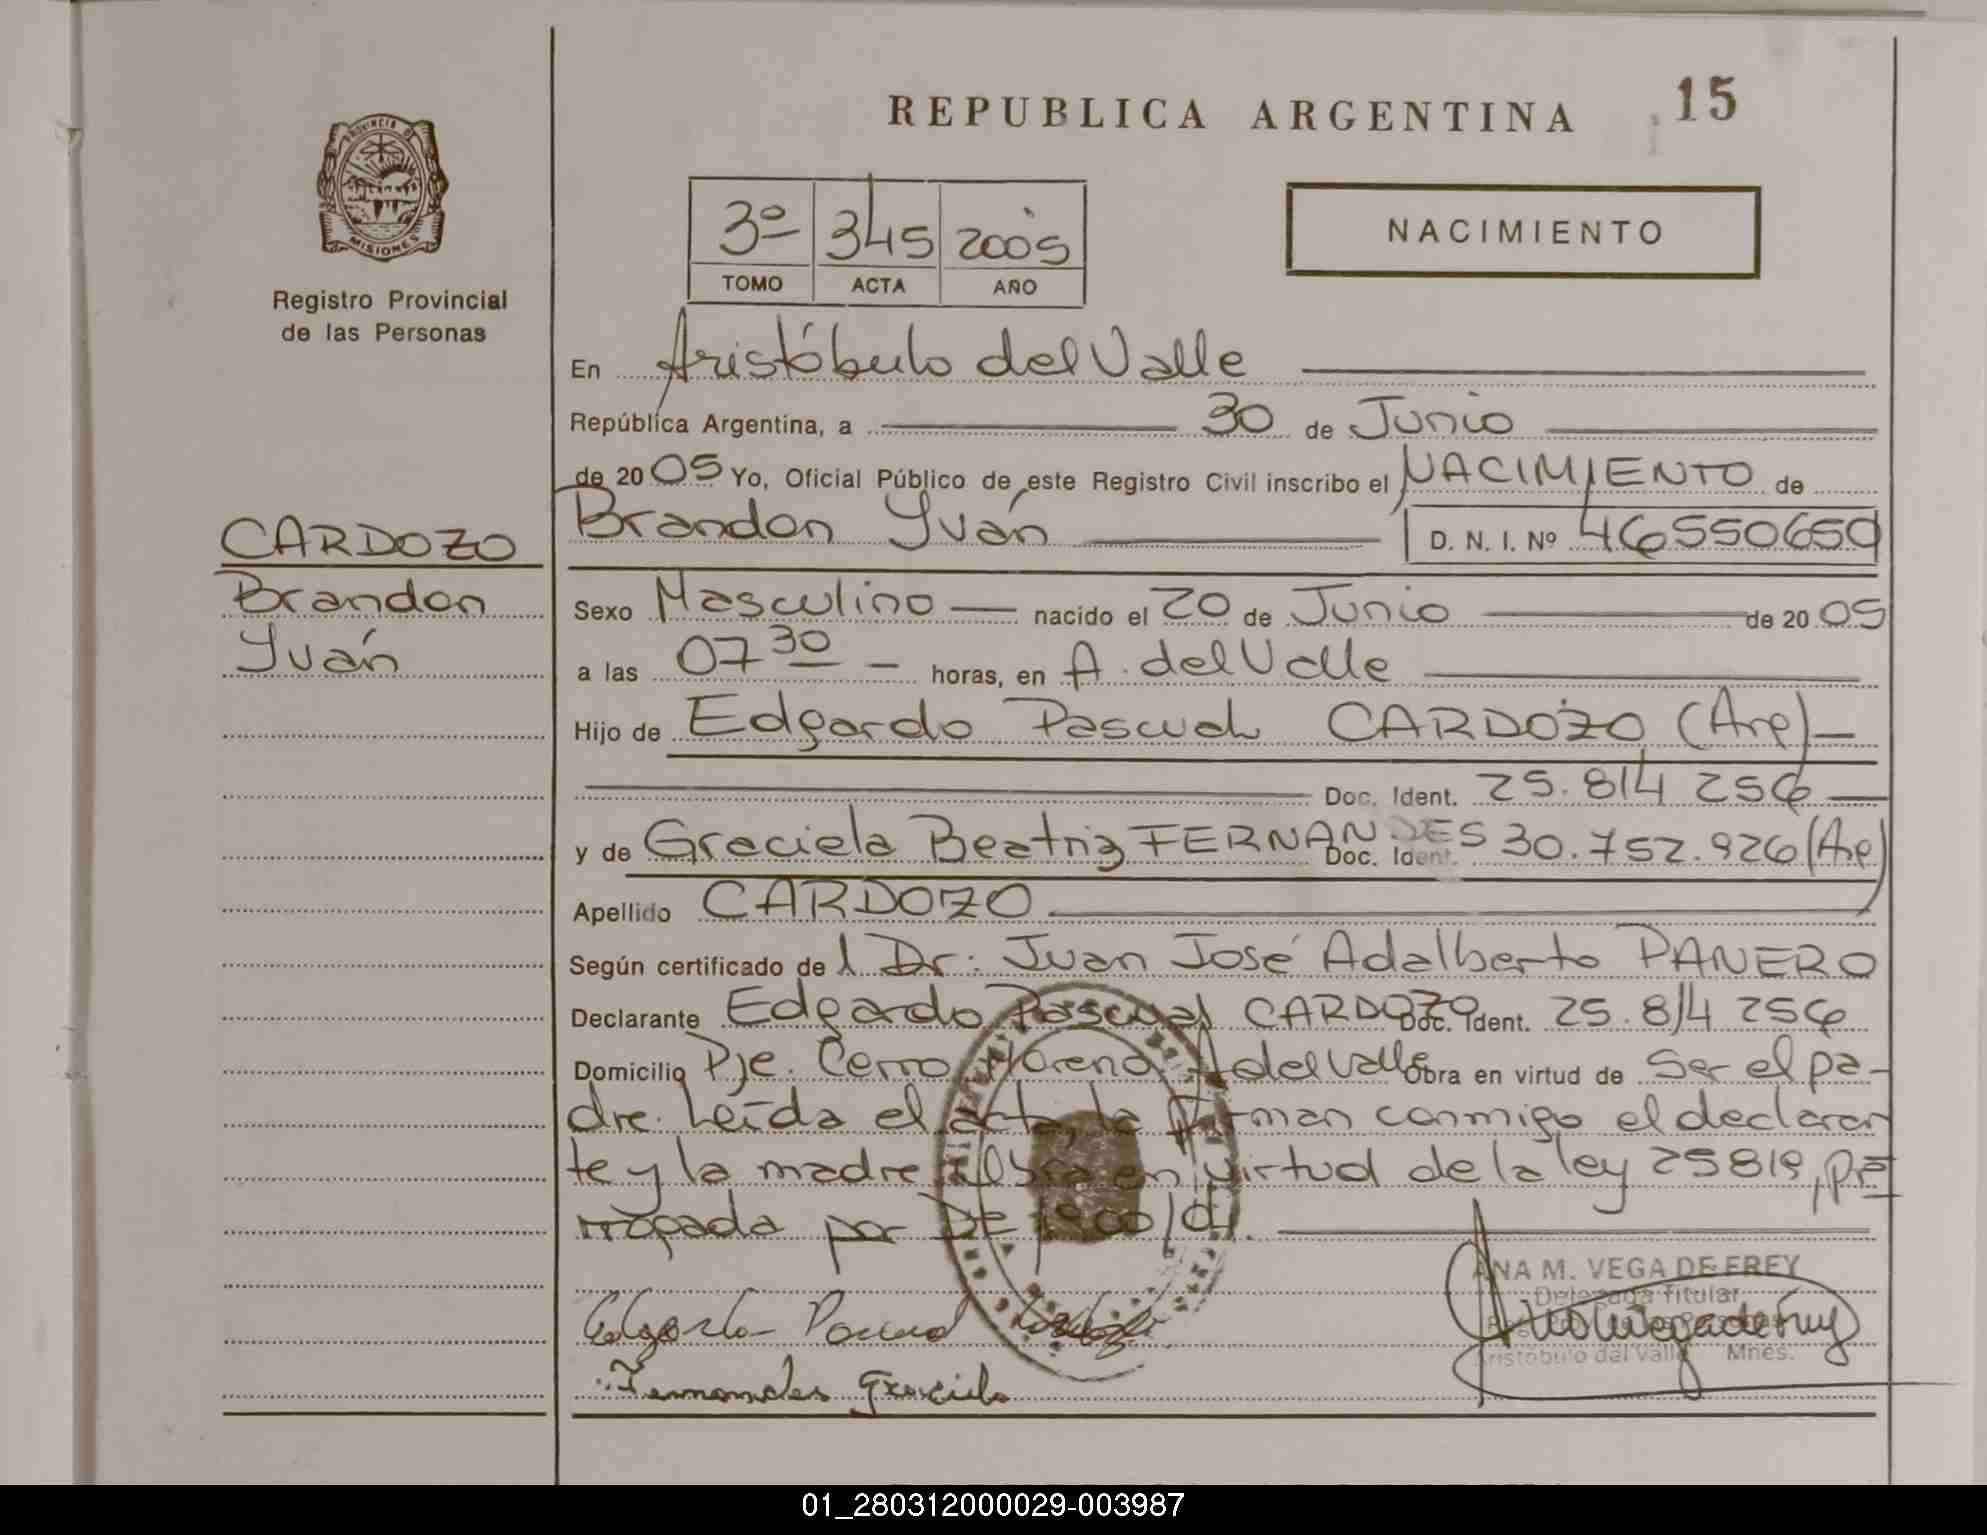 REPUBLICA ARGENTINA 15
PROVINCIA DE
MISIONES
Registro Provincial
de las Personas
3º 345 2005
TOMO ACTA AÑO
NACIMIENTO
En Aristóbulo del Valle
República Argentina, a 30 de Junio
de 2005 Yo, Oficial Público de este Registro Civil inscribo el NACIMIENTO de
Brandon Yván D. N. I. Nº 46550650
CARDOZO
Brandon
Yván
Sexo Masculino nacido el 20 de Junio de 2005
a las 07 30 horas, en A. del Valle
Hijo de Edgardo Pascual CARDOZO (Arg)
Doc. Ident. 25.814 256
y de Graciela Beatriz FERNANDES Doc. Ident. 30.752.926 (Arg)
Apellido CARDOZO
Según certificado del Dr: Juan José Adalberto PANERO
Declarante Edgardo Pascual CARDOZO Doc. Ident. 25.814 256
Domicilio Pje. Cerro Moreno A del Valle Obra en virtud de ser el pa-
dre. Leída el acta, la firman conmigo el declaran
te y la madre. Obra en virtud de la ley 25819, pro
rrogada por
Edgardo Pascual
Fernandes Graciela
ANA M. VEGA DE FREY
Delegada Titular
Aristóbulo del Valle Mnes.
01_280312000029-003987